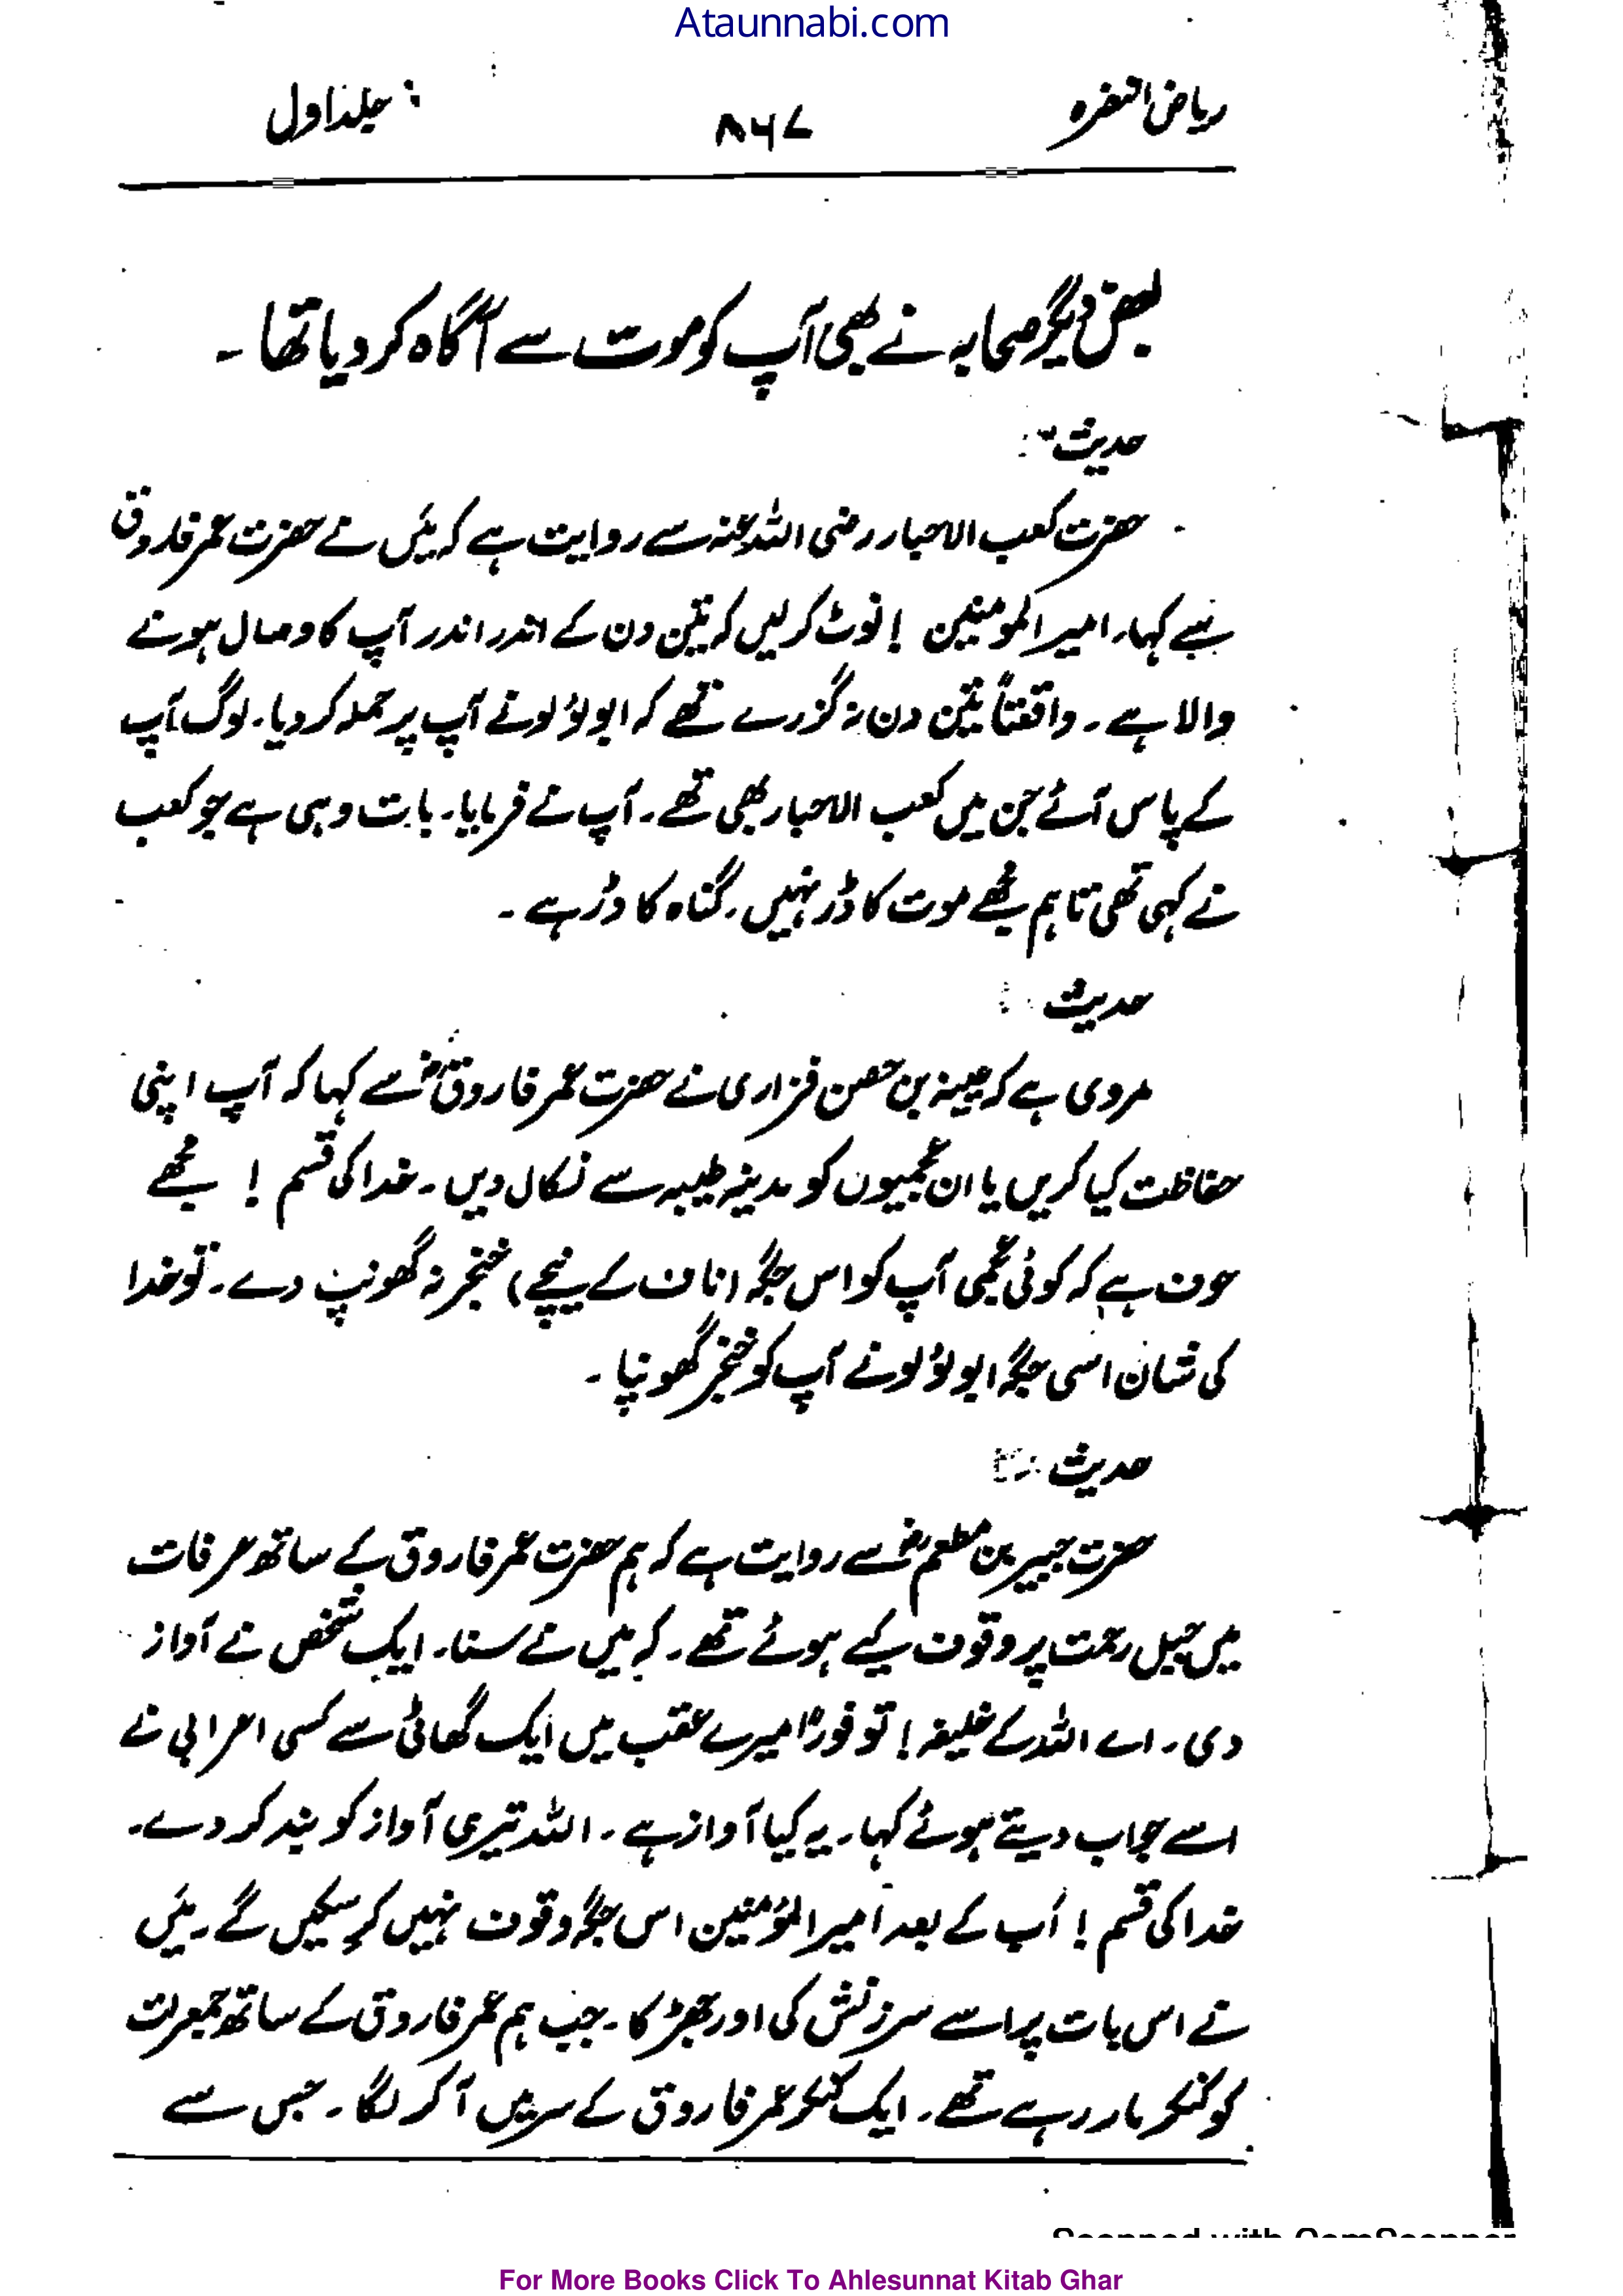 Ataunnabi.com
ریاض النضرہ ۸۶۷ جلد اول
بعض دیگر صحابہ نے بھی آپ کو موت سے آگاہ کر دیا تھا ۔
حدیث
حضرت کعب الاحبار رضی اللہ عنہ سے روایت ہے کہ میں نے حضرت عمر فاروق
سے کہا۔ امیر المومنین ! نوٹ کر لیں کہ تین دن کے اندر اندر آپ کا وصال ہونے
والا ہے ۔ واقعتاً تین دن نہ گزرے تھے کہ ابو لؤلو نے آپ پر حملہ کر دیا۔ لوگ آپ
کے پاس آئے جن میں کعب الاحبار بھی تھے۔ آپ نے فرمایا۔ بات وہی ہے جو کعب
نے کہی تھی تاہم مجھے موت کا ڈر نہیں۔ گناہ کا ڈر ہے ۔
حدیث
مروی ہے کہ عیینہ بن حصن فزاری نے حضرت عمر فاروقؓ سے کہا کہ آپ اپنی
حفاظت کیا کریں یا ان عجمیوں کو مدینہ طیبہ سے نکال دیں ۔ خدا کی قسم ! مجھے
خوف ہے کہ کوئی عجمی آپ کو اس جگہ (ناف کے نیچے) خنجر نہ گھونپ دے ۔ تو خدا
کی شان اسی جگہ ابو لؤلو نے آپ کو خنجر گھونپا ۔
حدیث
حضرت جبیر بن مطعمؓ سے روایت ہے کہ ہم حضرت عمر فاروق کے ساتھ عرفات
میں جبل رحمت پر وقوف کیے ہوئے تھے ۔ کہ میں نے سنا۔ ایک شخص نے آواز
دی ۔ اے اللہ کے خلیفہ ! تو فوراً میرے عقب میں ایک گھاٹی سے کسی اعرابی نے
اسے جواب دیتے ہوئے کہا۔ یہ کیا آواز ہے ۔ اللہ تیری آواز کو بند کر دے۔
خدا کی قسم ! آپ کے بعد امیر المؤمنین اس جگہ وقوف نہیں کر سکیں گے ۔ میں
نے اس بات پر اسے سرزنش کی اور جھڑکا ۔ جب ہم عمر فاروق کے ساتھ جمعرات
کو کنکر مار رہے تھے ۔ ایک کنکر عمر فاروق کے سر میں آ کر لگا ۔ جس سے
Scanned with CamScanner
For More Books Click To Ahlesunnat Kitab Ghar